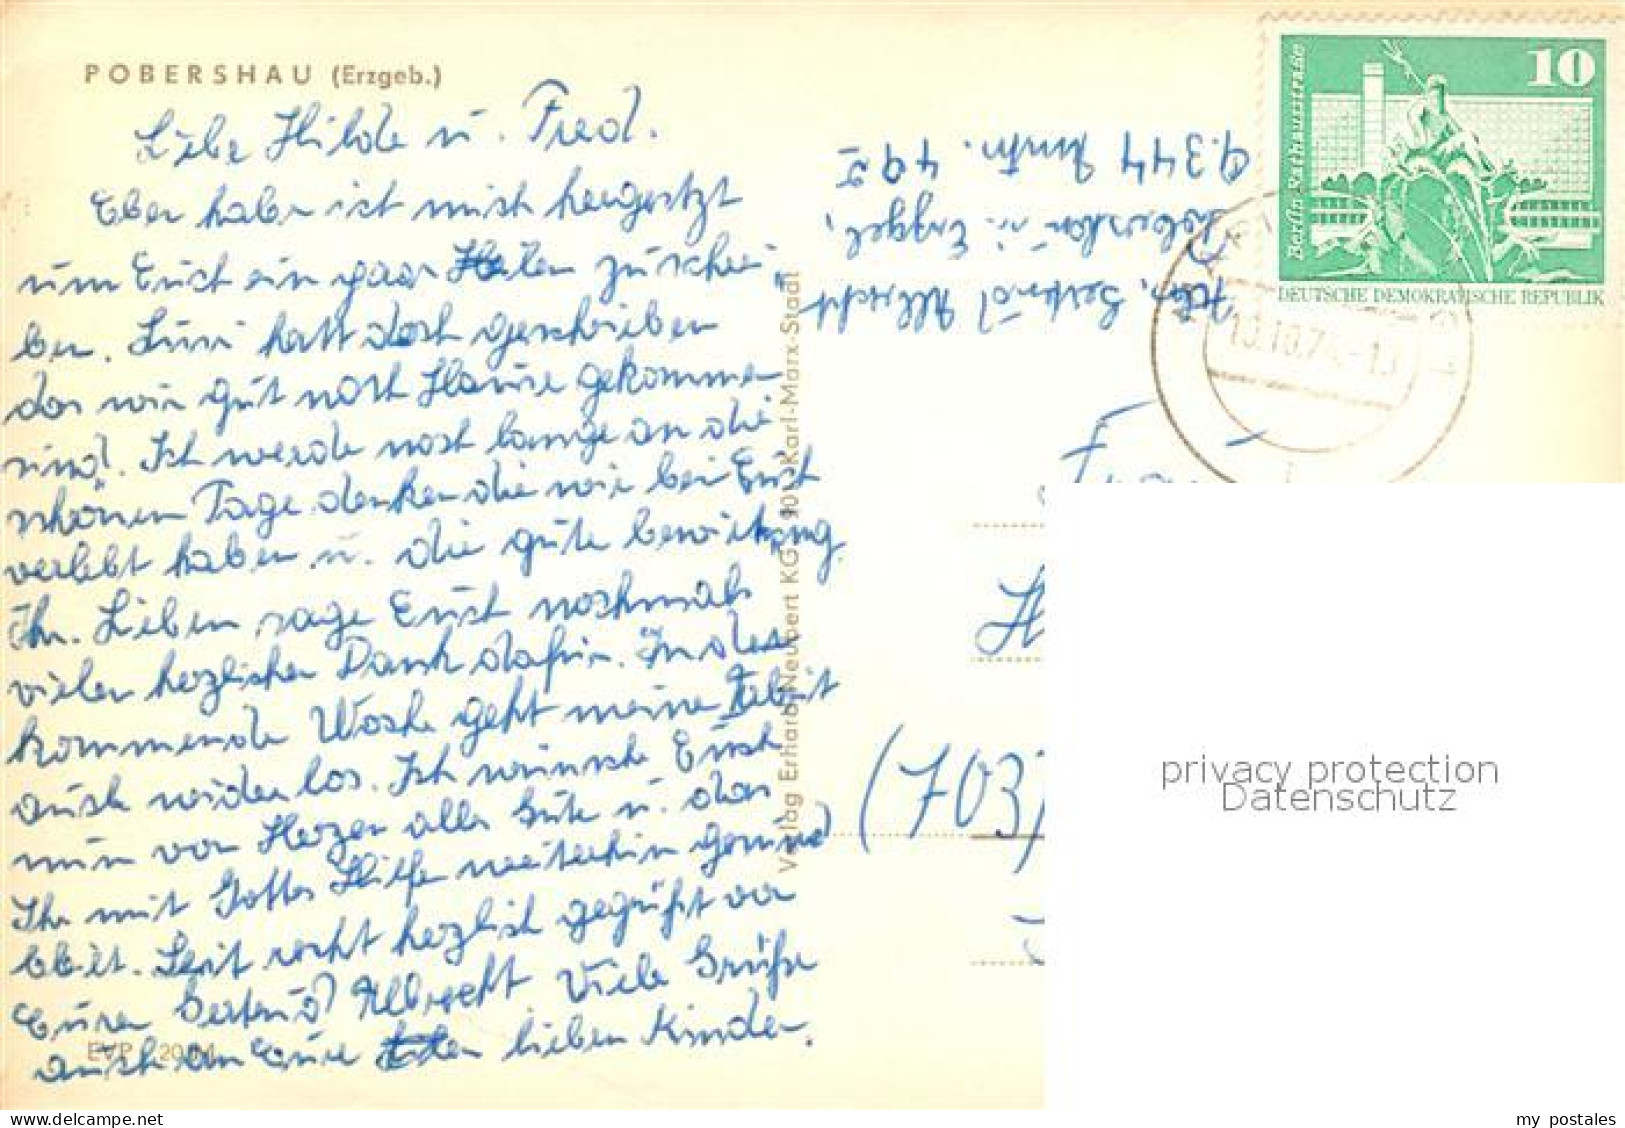 POBERSHAU (Erzgeb.)
Liebe Hilde u. Fred.
Eben habe ich mich hergesetzt
um Euch ein paar Zeilen zu schrei
ben. Luni hatt doch geschrieben
das wir gut nach Hause gekommen
sind. Ich werde noch lange an die
schönen Tage denken die wir bei Euch
verlebt haben u. die gute bewirtung.
Ihr. Lieben sage Euch nochmals
vielen herzlichen Dank dafür. In der
kommende Woche geht meine Arbeit
auch wider los. Ich wünsche Euch
nun von Herzen alles Gute u. das
Ihr mit Gottes Hilfe weiterhin gesund
bleibt. Seit recht herzlich gegrüßt von
Eurer Gertrud Albrecht Viele Grüße
auch an Eure lieben Kinder.
EVP
Verlag Erhard Neubert KG 901 Karl-Marx-Stadt
Abs. Gertrud Albrecht
Pobershau i. Erzgeb.
9344
(703)
10
Berlin, Rathausstraße
DEUTSCHE DEMOKRATISCHE REPUBLIK
privacy protection
Datenschutz
my postales